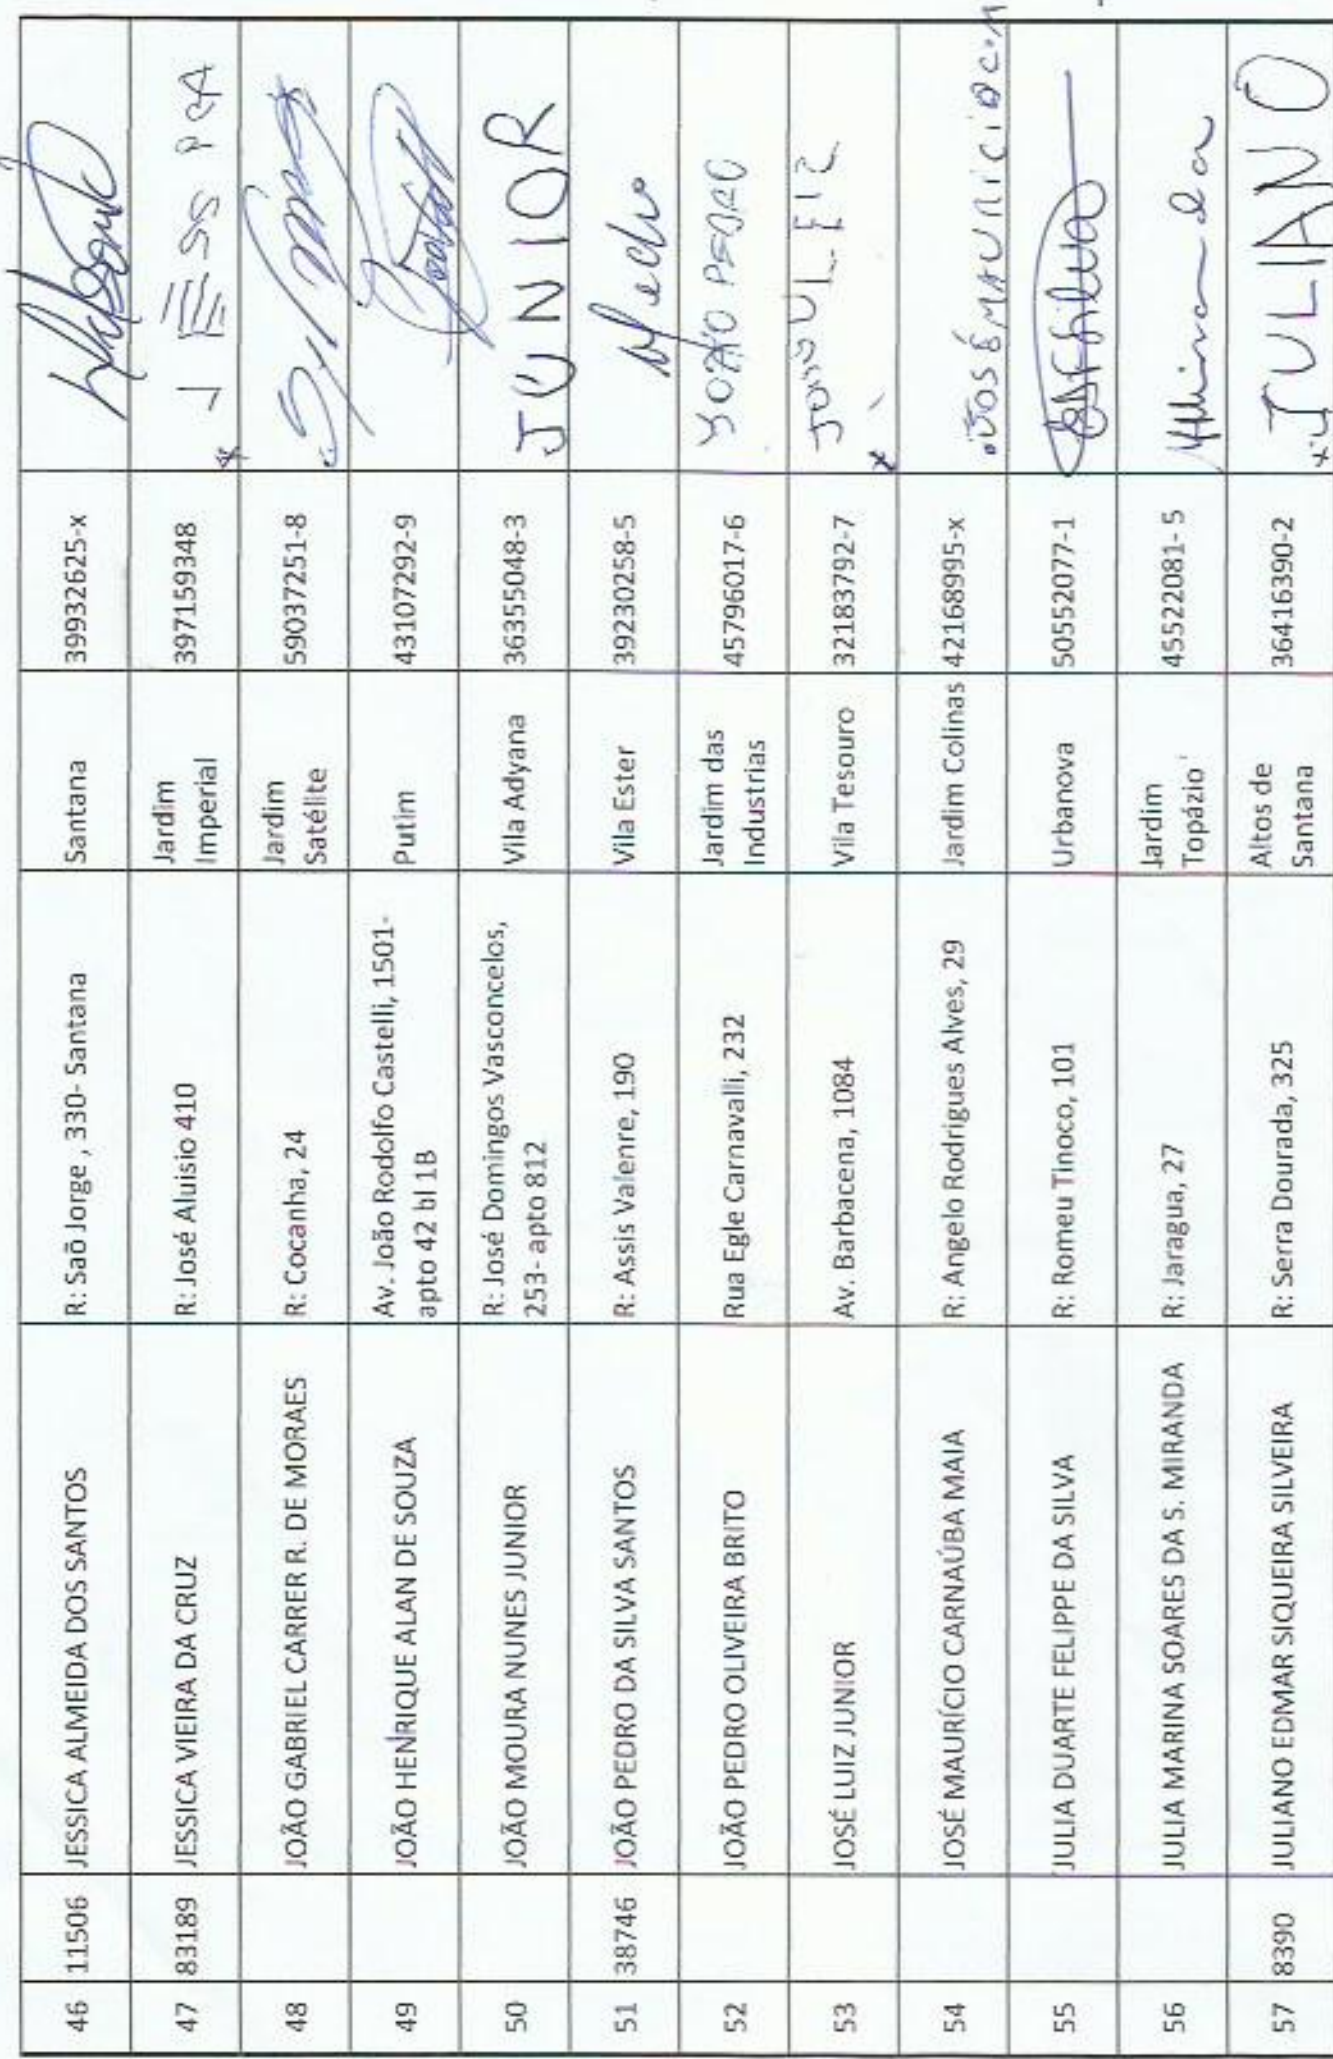 46 11506 JESSICA ALMEIDA DOS SANTOS R: Saõ Jorge , 330- Santana Santana 39932625-x
47 83189 JESSICA VIEIRA DA CRUZ R: José Aluisio 410 Jardim Imperial 397159348
48 JOÃO GABRIEL CARRER R. DE MORAES R: Cocanha, 24 Jardim Satélite 59037251-8
49 JOÃO HENRIQUE ALAN DE SOUZA Av. João Rodolfo Castelli, 1501-
apto 42 bl 1B Putim 43107292-9
50 JOÃO MOURA NUNES JUNIOR R: José Domingos Vasconcelos,
253- apto 812 Vila Adyana 36355048-3 JUNIOR
51 38746 JOÃO PEDRO DA SILVA SANTOS R: Assis Valenre, 190 Vila Ester 39230258-5
52 JOÃO PEDRO OLIVEIRA BRITO Rua Egle Carnavalli, 232 Jardim das
Industrias 45796017-6 JOÃO PEDRO
53 JOSÉ LUIZ JUNIOR Av. Barbacena, 1084 Vila Tesouro 32183792-7
54 JOSÉ MAURÍCIO CARNAÚBA MAIA R: Angelo Rodrigues Alves, 29 Jardim Colinas 42168995-x JOSÉ MAURICIO C.M
55 JULIA DUARTE FELIPPE DA SILVA R: Romeu Tinoco, 101 Urbanova 50552077-1
56 JULIA MARINA SOARES DA S. MIRANDA R: Jaragua, 27 Jardim
Topázio 45522081- 5
57 8390 JULIANO EDMAR SIQUEIRA SILVEIRA R: Serra Dourada, 325 Altos de
Santana 36416390-2 JULIANO